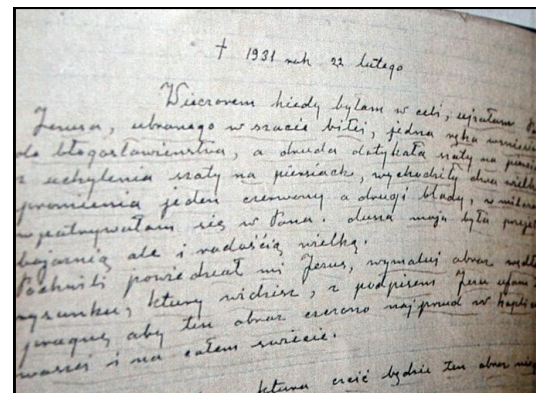 † 1931 rok 22 lutego
Wieczorem kiedy byłam w celi, ujrzałam
Jezusa, ubranego w szacie białej, jedna ręka wzniesiona
do błogosławieństwa, a druga dotykała szaty na
z uchylenia szaty na piersiach, wychodziły dwa wielkie
promienia jeden czerwony a drugi blady, w
wpatrywałam się w Pana. dusza moja była
bojaźnią ale i radością wielką.
Po chwili powiedział mi Jezus, wymaluj obraz
rysunku, który widzisz, z podpisem Jezu ufam
pragnę aby ten obraz czczono najprzud w
waszej i na całem świecie.
czcić będzie ten obraz